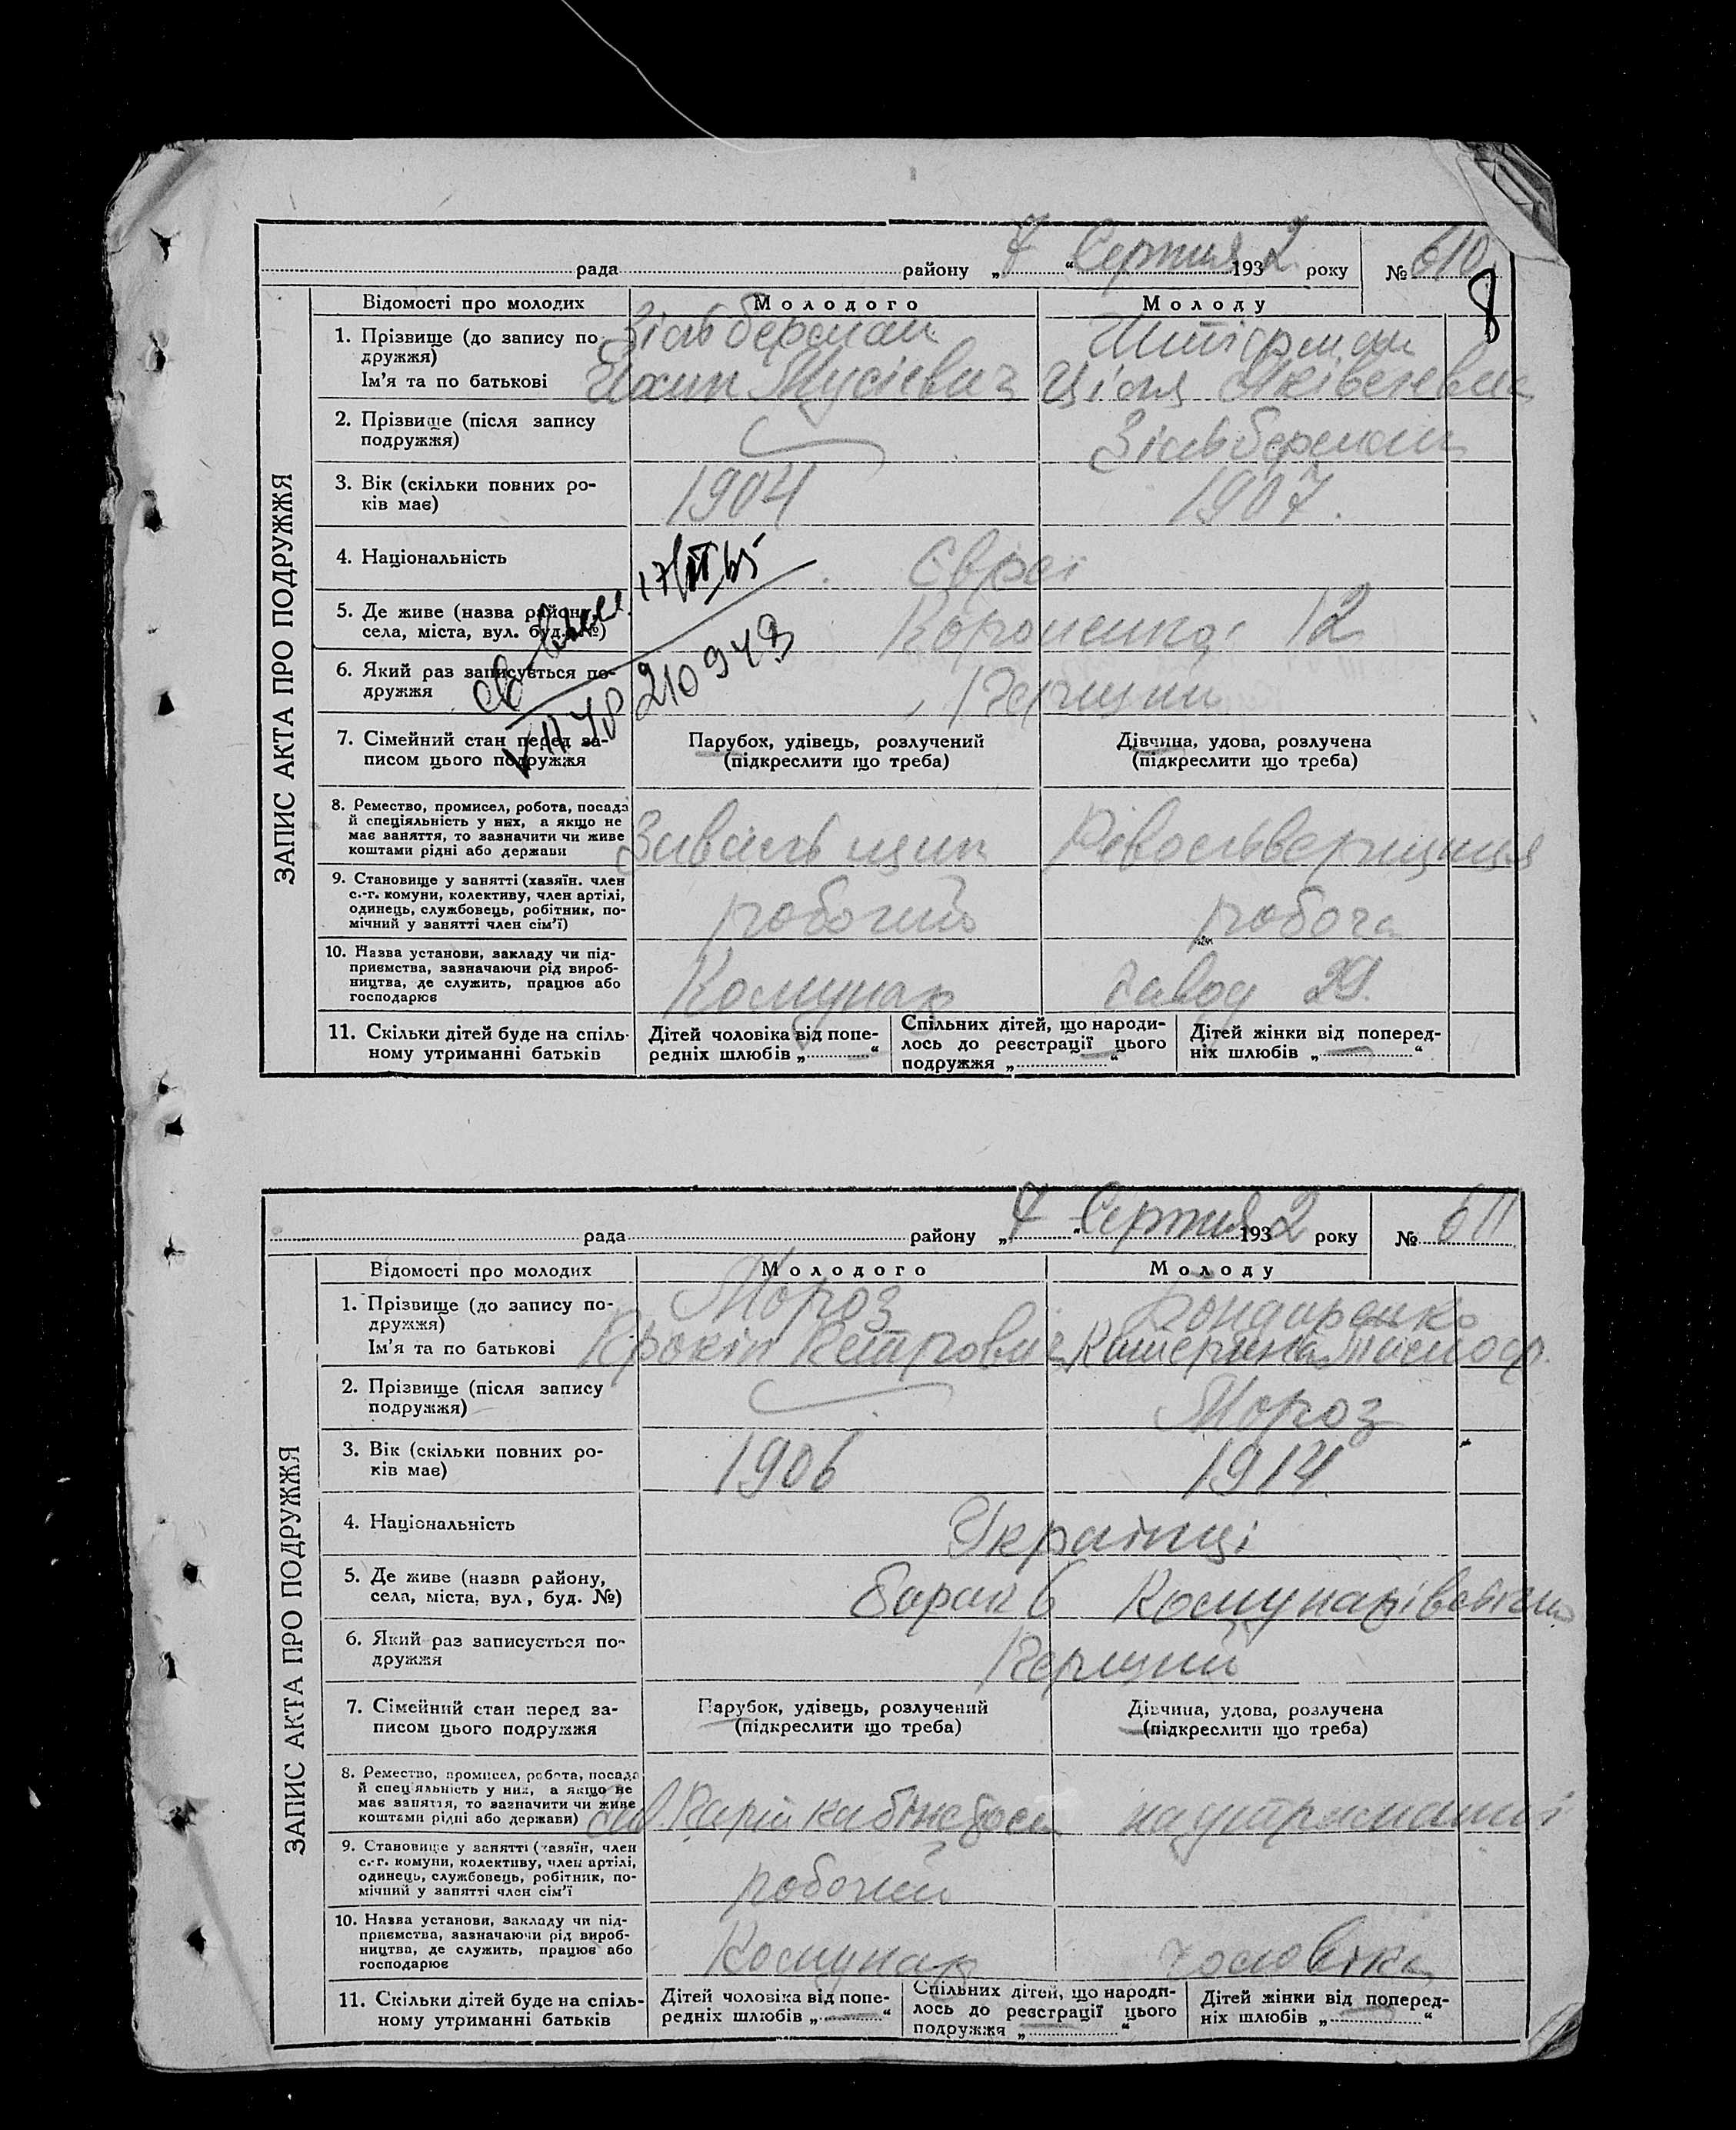 рада району „7“ Серпня 1932 року № 610
8
ЗАПИС АКТА ПРО ПОДРУЖЖЯ
Відомості про молодих Молодого Молоду
1. Прізвище (до запису по- Зільберман Штіфман
дружжя)
Ім'я та по батькові Мусієвич Ціля
2. Прізвище (після запису Зільберман
подружжя)
3. Вік (скільки повних ро- 1904 1907.
ків має)
4. Національність Євреї
5. Де живе (назва району, Короленка 12
села, міста, вул. буд. №)
6. Який раз записується по- Перший
дружжя
7. Сімейний стан перед за- Парубок, удівець, розлучений Дівчина, удова, розлучена
писом цього подружжя (підкреслити що треба) (підкреслити що треба)
210948
8. Ремество, промисел, робота, посада
й спеціяльність у них, а якщо не
має заняття, то зазначити чи живе Револьверниця
коштами рідні або держави
9. Становище у занятті (хазяїн. член
с.-г. комуни, колективу, член артілі,
одинець, службовець, робітник, по- робочий робоча
мічний у занятті член сім'ї)
10. Назва установи, закладу чи під-
приємства, зазначаючи рід вироб-
ництва, де служить, працює або Комунар завод 29.
господарює
11. Скільки дітей буде на спіль- Дітей чоловіка від попе- Спільних дітей, що народи- Дітей жінки від поперед-
ному утриманні батьків редніх шлюбів „ “ лось до реєстрації цього ніх шлюбів „ “
подружжя „ “
рада району „7“ Серпня 1932 року № 611
ЗАПИС АКТА ПРО ПОДРУЖЖЯ
Відомості про молодих Молодого Молоду
1. Прізвище (до запису по- Мороз Бондаренко
дружжя)
Ім'я та по батькові Прокіп Петрович Катерина Тимоф.
2. Прізвище (після запису Мороз
подружжя)
3. Вік (скільки повних ро- 1906 1914
ків має)
4. Національність Українці
5. Де живе (назва району, барак 6
села, міста, вул, буд. №)
6. Який раз записується по- Перший
дружжя
7. Сімейний стан перед за- Парубок, удівець, розлучений Дівчина, удова, розлучена
писом цього подружжя (підкреслити що треба) (підкреслити що треба)
8. Ремество, промисел, робота, посада
й спеціяльність у них, а якщо не
має заняття, то зазначити чи живе
коштами рідні або держави) Зав на утриманні
9. Становище у занятті (хазяїн, член
с.-г. комуни, колективу, член артілі,
одинець, службовець, робітник, по- робочий
мічний у занятті член сім'ї
10. Назва установи, закладу чи під-
приємства, зазначаючи рід вироб-
ництва, де служить, працює або Комунар чоловіка
господарює
11. Скільки дітей буде на спіль- Дітей чоловіка від попе- Спільних дітей, що народи- Дітей жінки від поперед-
ному утриманні батьків редніх шлюбів „ “ лось до реєстрації цього ніх шлюбів „ “
подружжя „ “